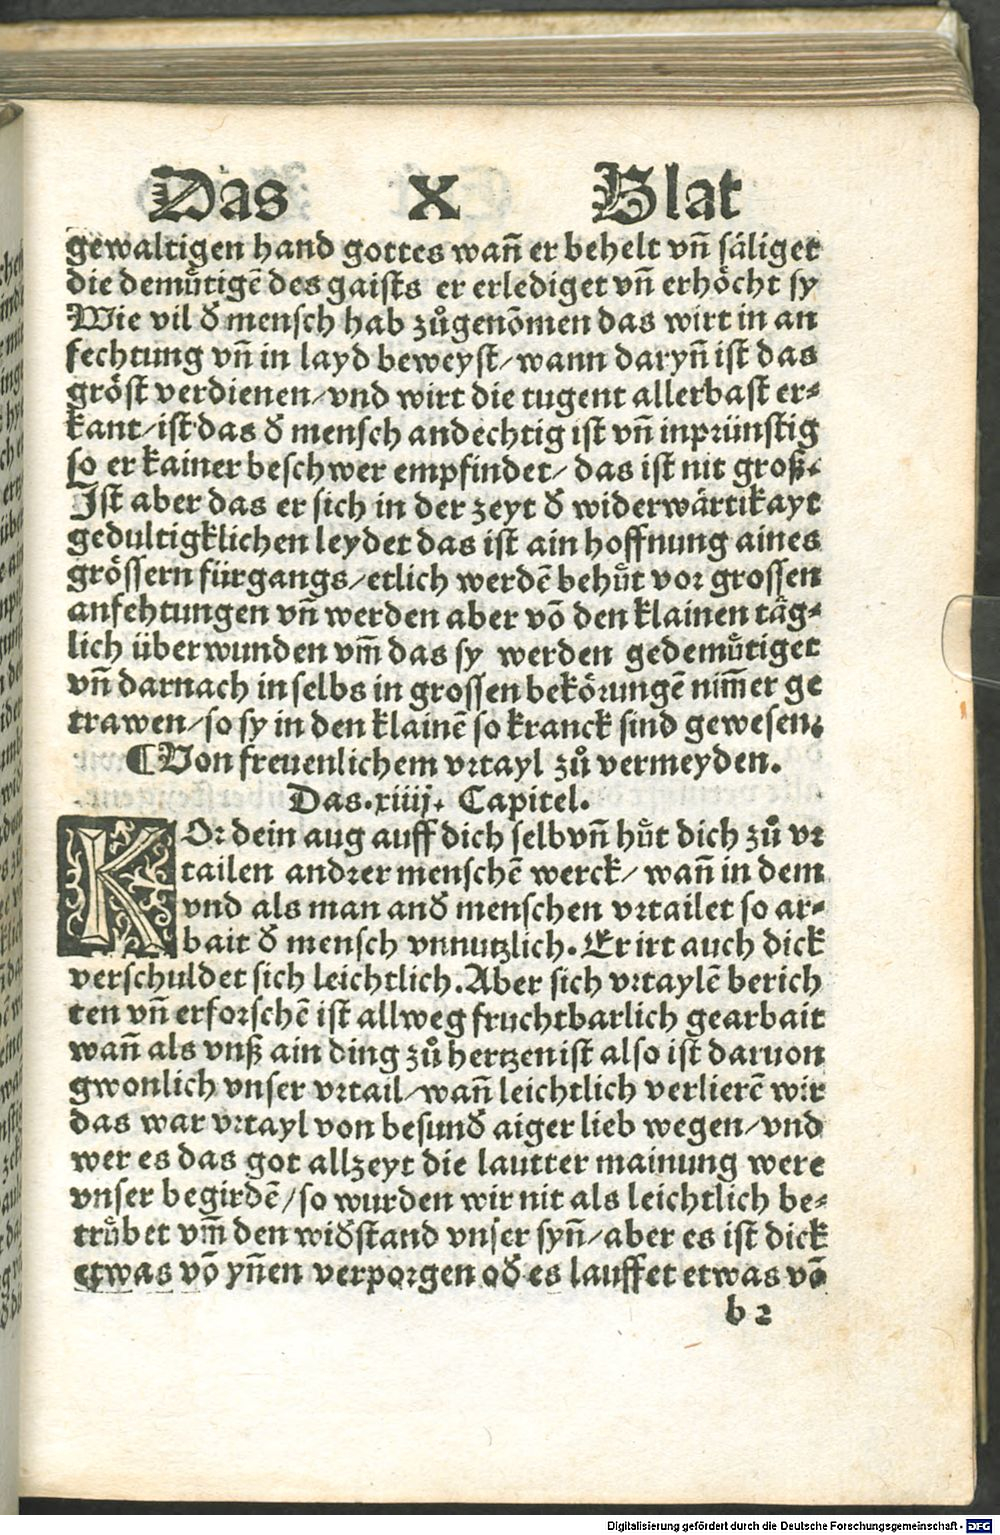 Das X Blat
gewaltigen hand gottes wañ er behelt vñ säliget
die demuͤtigē des gaists er erlediget vñ erhöcht sy
Wie vil ð mensch hab zůgenōmen das wirt in an
fechtung vñ in layd beweyst/wann daryñ ist das
gröst verdienen/vnd wirt die tugent allerbast er⸗
kant/ist das ð mensch andechtig ist vñ inprünstig
so er kainer beschwer empfindet/das ist nit groß.
Ist aber das er sich in der zeyt ð widerwärtikayt
gedultigklichen leydet das ist ain hoffnung aines
grössern fürgangs/etlich werdē behuͤt vor grossen
anfehtungen vñ werden aber vō den klainen täg⸗
lich überwunden vm̄ das sy werden gedemuͤtiget
vñ darnach in selbs in grossen bekörungē nim̄er ge
trawen/so sy in den klainē so kranck sind gewesen.
¶Von freuenlichem vrtayl zů vermeyden.
Das.xiiij. Capitel.
KOr dein aug auff dich selb vñ huͤt dich zů vr
tailen andrer menschē werck/wañ in dem
vnd als man anð menschen vrtailet so ar⸗
bait ð mensch vnnutzlich. Er irt auch dick
verschuldet sich leichtlich. Aber sich vrtaylē berich
ten vñ erforschē ist allweg fruchtbarlich gearbait
wañ als vnß ain ding zů hertzen ist also ist daruon
gwonlich vnser vrtail/wañ leichtlich verlierē wir
das war vrtayl von besunð aiger lieb wegen/vnd
wer es das got allzeyt die lautter mainung were
vnser begirdē/so wurden wir nit als leichtlich be⸗
truͤbet vm̄ den wiðstand vnser syñ/aber es ist dick
etwas vō yñen verporgen oð es lauffet etwas vō
b 2
Digitalisierung gefördert durch die Deutsche Forschungsgemeinschaft - DFG